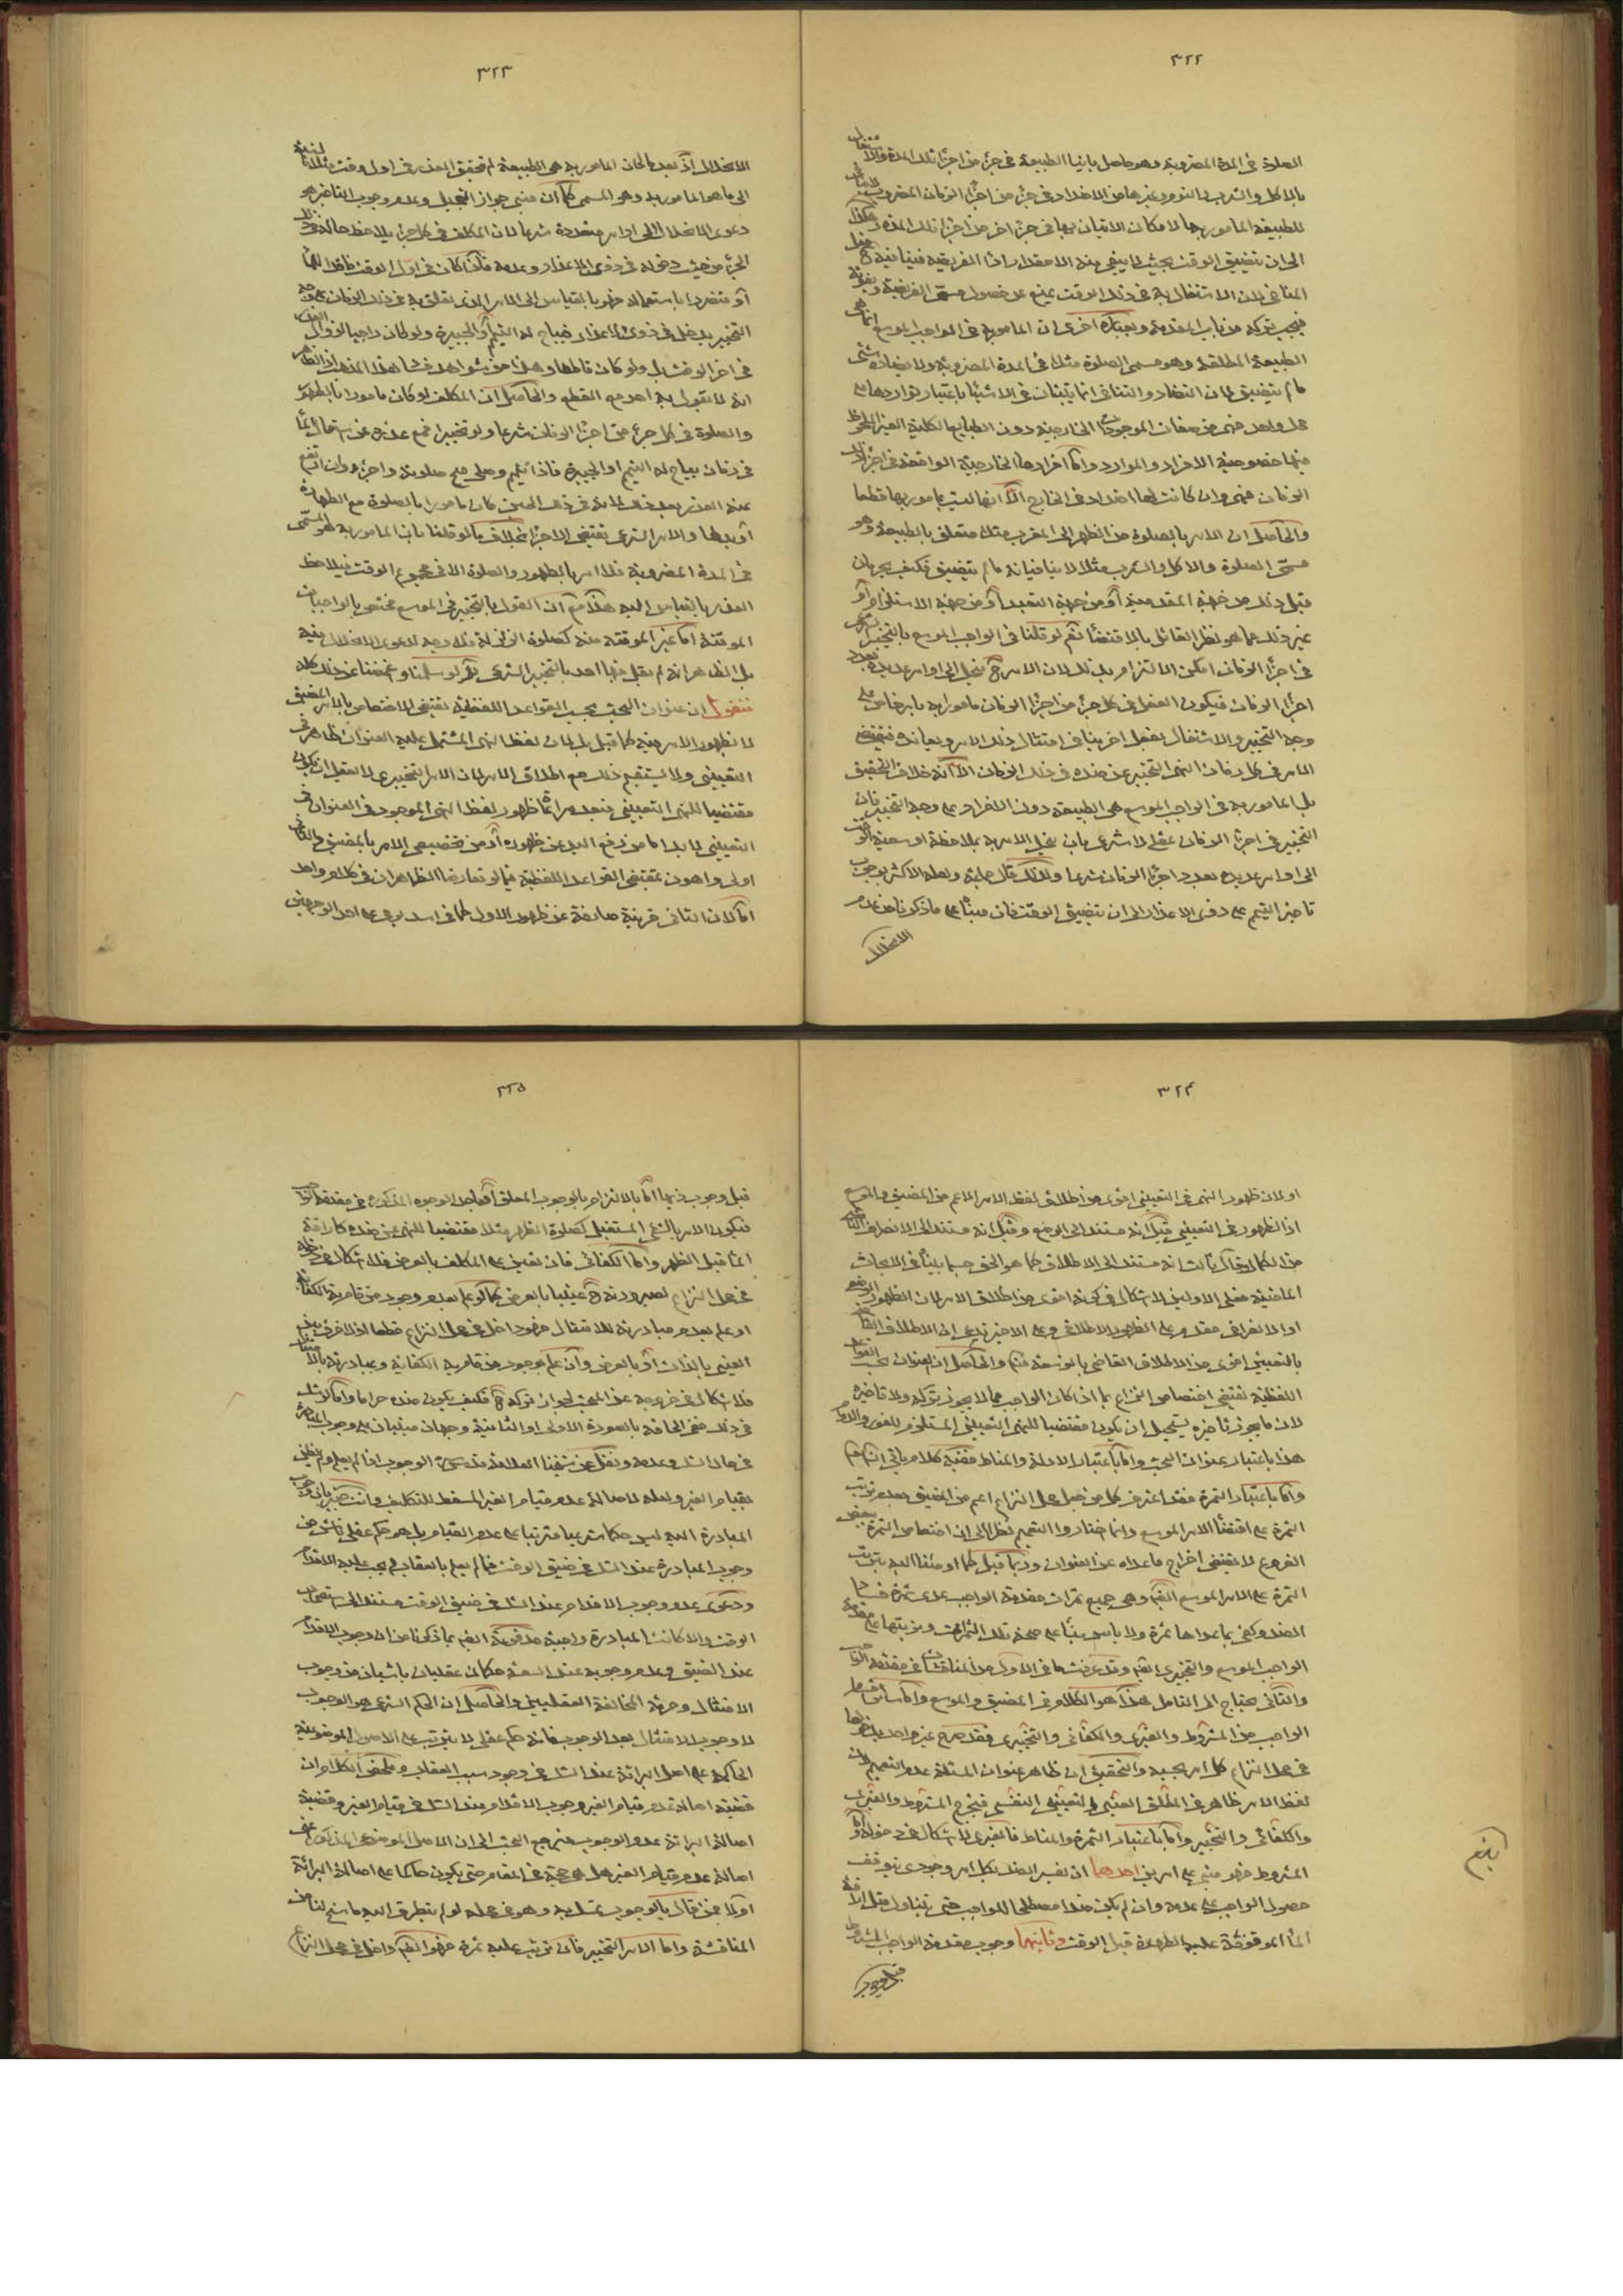 ٣٢٢
الصلوة فى المدة المضروبة وهو حاصل باتيان الطبيعة فى جزء من اجزاء تلك المدة والاشتغال
بالاكل والشرب والنوم وغيرها من الاضداد فى جزء من اجزاء الزمان المضروب
للطبيعة المامور بها لامكان الاتيان بها فى جزء اخر من اجزاء تلك المدة وهكذا
الى ان يتضيق الوقت بحيث لا يبقى منه الا مقدار اداء الفريضة فينافيه ح
المنافى لان الاشتغال به فى ذلك الوقت يمنع عن حصول مسمى الفريضة
فيجب تركه من باب المقدمة وبعبارة اخرى ان المامور به فى الواجب الموسع انما هى
الطبيعة المطلقة وهو مسمى الصلوة مثلا فى المدة المضروبة ولا يضاده شئ
ما لم يتضيق لان التضاد والتنافى انما يثبتان فى الاشياء باعتبار تواردها على
محل واحد فهى من صفات الموجودات الخارجية دون الطبايع الكلية الغير الملحوظ
فيها خصوصية الافراد والموارد واما افرادها الخارجية الواقعة فى اجزاء ذلك
الزمان فهى وان كانت لها اضداد فى الخارج الا انها ليست بمامور بها قطعا
والحاصل ان الامر بالصلوة من الظهر الى المغرب مثلا متعلق بالطبيعة وهو
مسمى الصلوة والاكل والشرب مثلا لا ينافيانه ما لم يتضيق فكيف يحرمان
قبل ذلك من جهة المقدمية او من جهة التقييد او من جهة الاستلزام او
غير ذلك مما هو نظر القائل بالاقتضاء نعم لو قلنا فى الواجب الموسع بالتخيير الشرعى
فى اجزاء الزمان امكن الالتزام بذلك لان الامر ح ينحل الى اوامر عديدة بعدد
اجزاء الزمان فيكون الفعل فى كل جزء من اجزاء الزمان مامورا به بامر خاص على
وجه التخيير والاشتغال بفعل اخر ينافى امتثال ذلك الامر ويعانده فيقتضى
الامر فى كل زمان النهى التخييرى عن ضده فى ذلك الزمان الا انه خلاف التحقيق
بل المامور به فى الواجب الموسع هى الطبيعة دون الافراد على وجه التخيير فان
التخيير فى اجزاء الزمان عقلى لا شرعى بان ينحل الامر به بملاحظة اوسعية الوقت
الى اوامر عديدة بعدد اجزاء الزمان شرعا ولذلك قال جلة ولعله الاكثر بوجوب
تاخير التيمم على ذوى الاعذار الى ان يتضيق الوقت فان مبناه على ما ذكرنا من عدم
الانحلال
٣٢٣
الانحلال اذ بعد ما كان المامور به هى الطبيعة لم يتحقق العذر فى اول وقت مثلا بالنسبة
الى ما هو المامور به وهو المسمى كما ان مبنى جواز التعجيل وعدم وجوب التاخير هو
دعوى الانحلال الى اوامر متعددة شرعا لان المكلف فى كل جزء يلاحظ حاله فى ذلك
الجزء من حيث دخوله فى ذوى الاعذار وعدمه فاذا كان فى اول الوقت فاقدا للماء
او متضررا باستعماله فهو بالقياس الى الامر الذى تعلق به فى ذلك الزمان على وجه
التخيير يدخل فى ذوى الاعذار فيباح له التيمم والجبيرة ولو كان راجيا لزوال العذر
فى اخر الوقت بل ولو كان قاطعا وهذا من شواهد فساد هذا المذهب اذ الظاهر
انه لا يقول به احد مع القطع والحاصل ان المكلف لو كان مامورا بالطهور
والصلوة فى كل جزء من اجزاء الزمان شرعا ولو تخييرا فمع عذره عن استعمال الماء
فى زمان يباح له التيمم او الجبيرة فاذا تيمم وصلى صح صلوته واجزء وان ارتفع
عنه العذر بعد ذلك لانه فى ذلك الحين كان مامورا بالصلوة مع الطهارة
او بدلها والامر الشرعى يقتضى الاجزاء بخلاف ما لو قلنا بان المامور به هو المسمى
فى المدة المضروبة فلا امر بالطهور والصلوة الا فى مجموع الوقت فيلاحظ
العذر بالقياس اليه هذا مع ان القول بالتخيير فى الموسع مختص بالواجبات
الموقتة اما غير الموقتة منه كصلوة الزلزلة فلا وجه لدعوى الانحلال فيه
بل الظاهر انه لم يقل فيها احد بالتخيير الشرعى ثم لو سلمنا وغمضنا عن ذلك كله
فنقول ان عنوان البحث بحسب القواعد اللفظية يقتضى الاختصاص بالامر المضيق
لا لظهور الامر فيه كما قيل بل لان لفظ النهى المشتمل عليه العنوان ظاهر فى
التعيينى ولا يستقيم ذلك مع اطلاق الامر لان الامر التخييرى لا يعقل ان يكون
مقتضيا للنهى التعيينى فبعد مراعاة ظهور لفظ النهى الموجود فى العنوان فى
التعيينى لا بد اما من رفع اليد عن ظهوره او من تخصيص الامر بالمضيق والثانى
اولى واهون بمقتضى القواعد اللفظية فيما لو تعارض الظاهران فى كلام واحد
اما لان الثانى قرينة صارفة عن ظهور الاول كما فى اسد يرمى على احد الوجهين
٣٢٤
او لان ظهور النهى فى التعيينى اقوى من اطلاق لفظ الامر الاعم من المضيق والموسع
اذ الظهور فى التعيينى قيل انه مستند الى الوضع وقيل انه مستند الى الانصراف الناشى
من الكمال وقال ثالث انه مستند الى الاطلاق كما هو الحق حسبما بيناه فى الابحاث
الماضية فعلى الاولين لا اشكال فى كونه اقوى من اطلاق الامر لان الظهور الوضعى
او الانصرافى مقدم على الظهور الاطلاقى وعلى الاخير ندعى ان الاطلاق القاضى
بالتعيينى اقوى من الاطلاق القاضى بالتوسعة فتم والحاصل ان العنوان بحسب القواعد
اللفظية يقتضى اختصاص النزاع بما اذا كان الواجب مما لا يجوز تركه ولا تاخيره
لان ما يجوز تاخيره يستحيل ان يكون مقتضيا للنهى التعيينى المستلزم للفور والدوام
هذا باعتبار عنوان البحث واما باعتبار الادلة والمناط ففيه كلام ياتى انشاء الله
واما باعتبار الثمرة فقد اعترف كل من جعل محل النزاع اعم من المضيق بعدم ترتب
الثمرة على اقتضاء الامر الموسع وانما اختاروا التعميم نظرا الى ان اختصاص الثمرة ببعض
الفروع لا يقتضى اخراج ما عداه عن العنوان وربما قيل كما اومئنا اليه بترتب
الثمرة على الامر الموسع ايضا وهى جميع ثمرات مقدمة الواجب عدى ثمرة فساد
الضد وكفى بما عداها ثمرة ولا باس به بناء على صحة تلك الثمرات وترتبها على مقدمة
الواجب الموسع والتخييرى ايضا وقد عرفت ما فى الاول من المناقشة فى مقدمة الواجب
والثانى يحتاج الى التامل هذا هو الكلام فى المضيق والموسع واما سائر اقسام
الواجب من المشروط والغيرى والكفائى والتخييرى فقد صرح غير واحد بدخولها
فى محل النزاع كل امر بحسبه والتحقيق ان ظاهر عنوان المسئلة عدم التعميم لان
لفظ الامر ظاهر فى المطلق العينى التعيينى النفسى فيخرج المشروط والغيرى
والكفائى والتخيير واما باعتبار الثمرة والمناط فالغيرى لا اشكال فى دخوله واما
المشروط فهو مبنى على امرين احدهما ان نفسر الضد بكل امر وجودى يتوقف
حصول الواجب على عدمه وان لم يكن ضدا مصطلحا للواجب حتى يتناول مثل اراقة
الماء الموقوفة عليه الطهارة قبل الوقت وثانيهما وجوب مقدمة الواجب المشروط
قبل وجوب
٣٢٥
قبل وجوب ذيها اما بالالتزام بالوجوب المعلق او باحد الوجوه المذكورة فى مقدمة الواجب
فيكون الامر بالشئ المستقبل كصلوة الظهر مثلا مقتضيا للنهى عن ضده كاراقة
الماء قبل الظهر واما الكفائى فان تعين على المكلف بالعرض فلا اشكال فى دخوله
فى محل النزاع لصيرورته ح عينيا بالعرض كما لو علم بعدم وجود من قام به الكفاية
او علم بعدم مبادرته للامتثال فهو داخل فى محل النزاع قطعا اذ لا فرق بين
العينى بالذات او بالعرض وان علم بوجود من قام به الكفاية وبمبادرته بالامتثال
فلا اشكال فى خروجه عن المبحث لجواز تركه ح فكيف يكون ضده حراما واما لو شك
فى ذلك ففى الحاقه بالصورة الاولى او الثانية وجهان مبنيان على وجوب المبادرة
فى حال الشك وعدمه ونقل عن شيخنا العلامة قدس سره الوجوب اذا لم يعلم ولم يظن
بقيام الغير ولعله لاصالة عدم قيام الغير المسقط للتكليف وانت خبير بان وجوب
المبادرة اليه ليس حكما شرعيا مترتبا على عدم القيام بل هو حكم عقلى ناش من
وجوب المبادرة عند الشك فى ضيق الوقت فما لم يعلم بالعقاب لم يجب عليه الاقدام
ودعوى عدم وجوب الاقدام عند الشك فى ضيق الوقت مستندا الى استصحاب
الوقت والا كانت المبادرة واجبة مدفوعة ايضا بما ذكرنا من ان وجوب الاقدام
عند الضيق وعدم وجوبه عند السعة حكمان عقليان ناشيان من وجوب
الامتثال وحرمة المخالفة العقليين والحاصل ان الحكم الشرعى هو الوجوب
لا وجوب الامتثال بعد الوجوب فانه حكم عقلى لا يترتب على الاصول الموضوعية
الحاكمة على اصل البرائة عند الشك فى وجود سبب العقاب وملخص الكلام ان
قضية اصالة عدم قيام الغير وجوب الاقدام عند الشك فى قيام الغير وقضية
اصالة البرائة عدم الوجوب فيرجع البحث الى ان الاصل الموضوعى المذكور اعنى
اصالة عدم قيام الغير هل هى حجة فى المقام حتى يكون حاكما على اصالة البرائة
او لا فمن قال بالوجوب تمسك به وهو فى محله لو لم يتطرق اليه ما سنح لنا من
المناقشة واما الامر التخيير فان ترتب عليه ثمرة فهو ايضا داخل فى محل النزاع